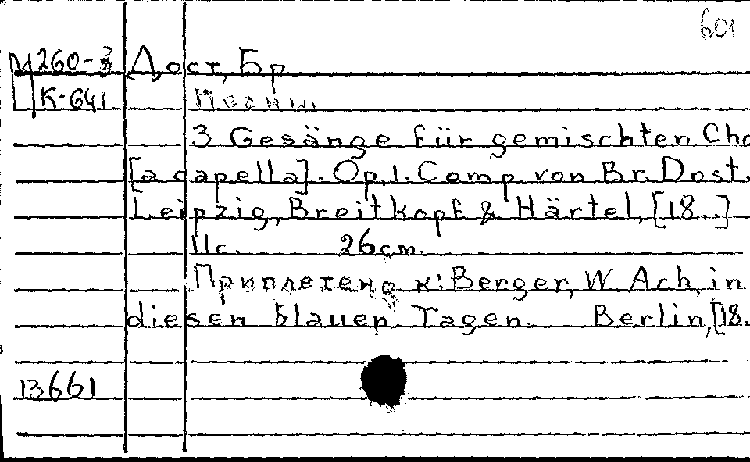 601
М260-3 Дост, Бр.
К-641 Песни.
3 Gesänge für gemischten Cho
[a capella]. Op.1. Comp. von Br. Dost.
Leipzig, Breitkopf & Härtel, [18..]
11с. 26cm.
Приплетено к: Berger, W. Ach, in
diesen blauen Tagen. Berlin, [18.
13661